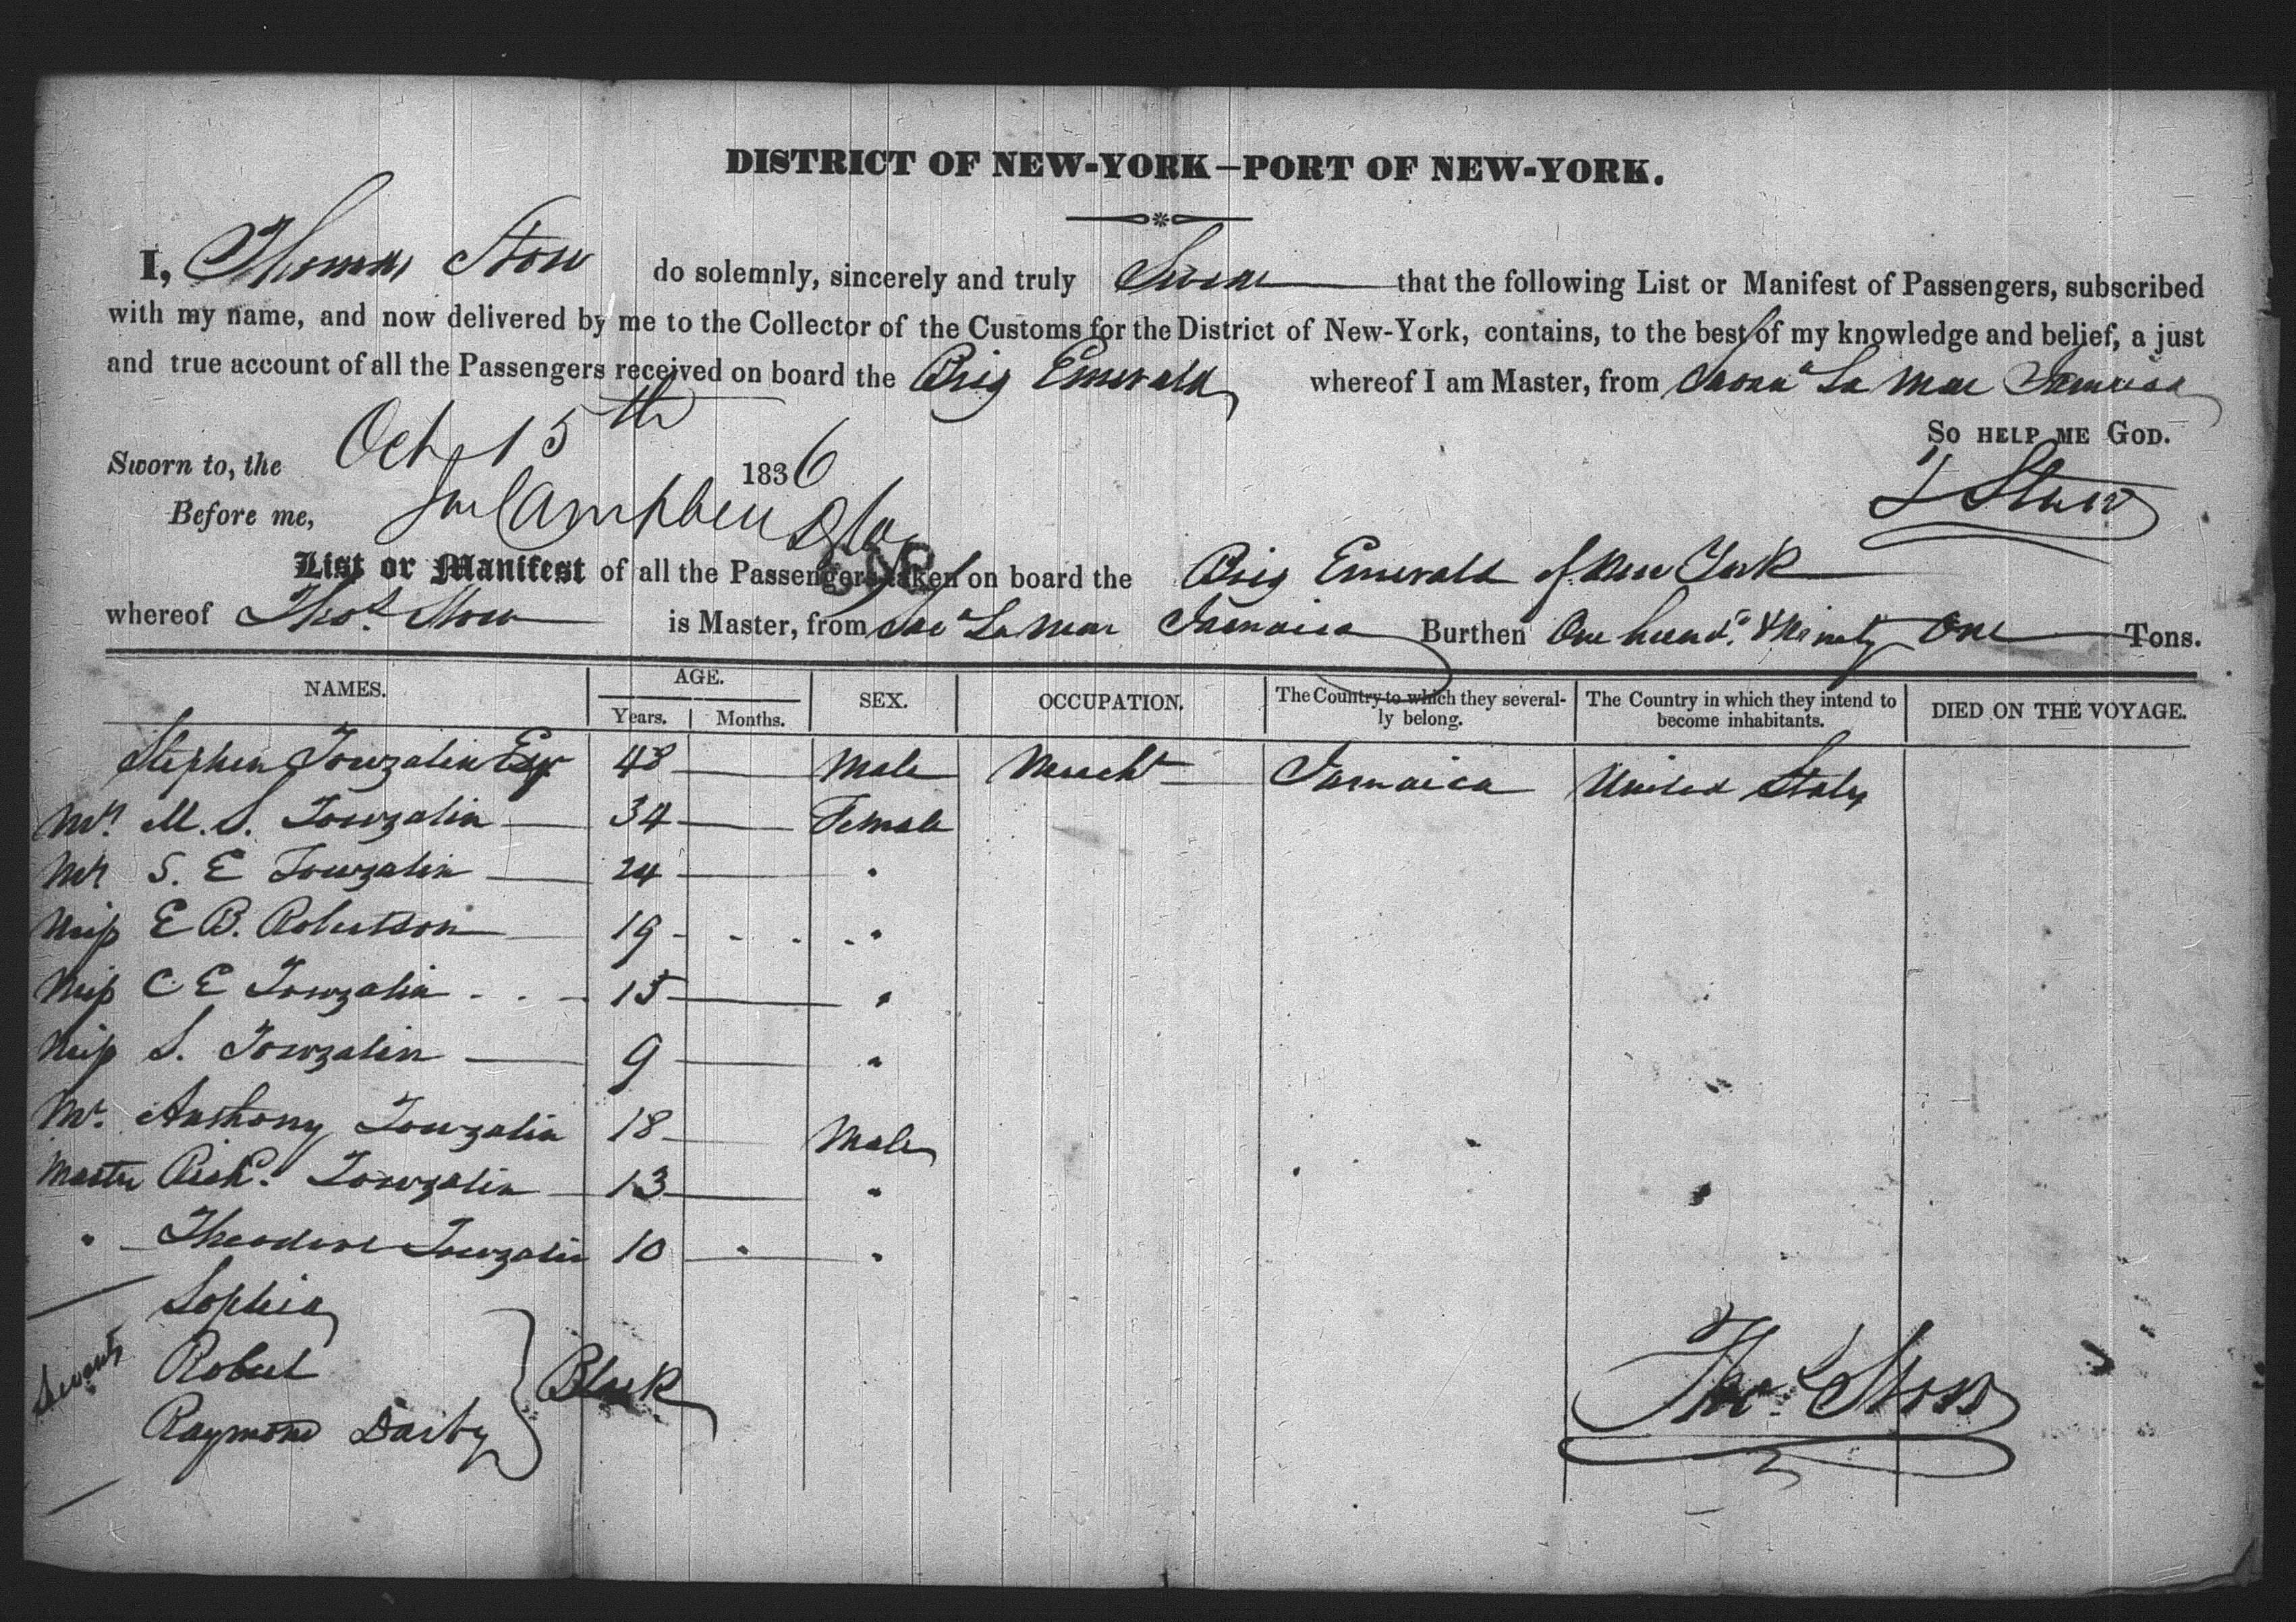 DISTRICT OF NEW-YORK—PORT OF NEW-YORK.
I, Thomas Stow do solemnly, sincerely and truly Swear that the following List or Manifest of Passengers, subscribed
with my name, and now delivered by me to the Collector of the Customs for the District of New-York, contains, to the best of my knowledge and belief, a just
and true account of all the Passengers received on board the Brig Emerald whereof I am Master, from Savana La Mar Jamaica
SO HELP ME GOD.
Sworn to, the Oct 15th 1836
T Stow
Before me, Campbell
List or Manifest of all the Passengers taken on board the Brig Emerald of New York
whereof Thos. Stow is Master, from Sav La Mar Jamaica Burthen One hund. & Ninety One Tons.
NAMES. AGE. SEX. OCCUPATION. The Country to which they several-ly belong. The Country in which they intend to become inhabitants. DIED ON THE VOYAGE.
Years. Months.
Stephen Towzalin Esqr 48 Male Mercht Jamaica United States
Mrs M. S. Towzalin 34 Female
Mrs S. E Towzalin 24 "
Miss E B. Robertson 19 "
Miss C E Towzalin 15 "
Miss S. Towzalin 9 "
Mr. Anthony Towzalin 18 Male
Master Richd. Towzalin 13 "
" Theodore Towzalin 10 " "
Sophia
Servants Robert Black
Raymond Darby
Thos Stow